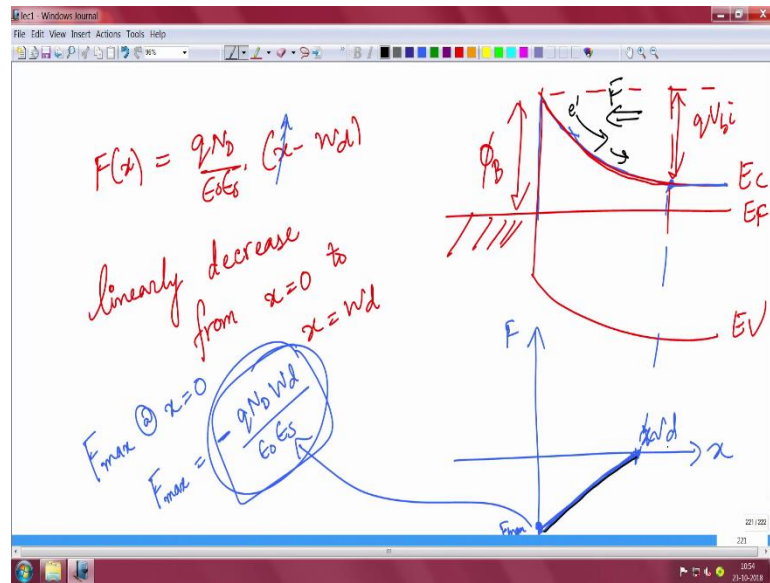 lec1 - Windows Journal
File Edit View Insert Actions Tools Help
96%
B I
F(x) = qN_D / ε₀εₛ · (x - Wd)
linearly decrease
from x=0 to
x=Wd
F_max @ x=0
F_max = - qN_D Wd / ε₀εₛ
F
e'
qV_bi
ϕ_B
E_C
E_F
E_V
F
Wd
x
F_max
221 / 222
221
10:54
23-10-2018